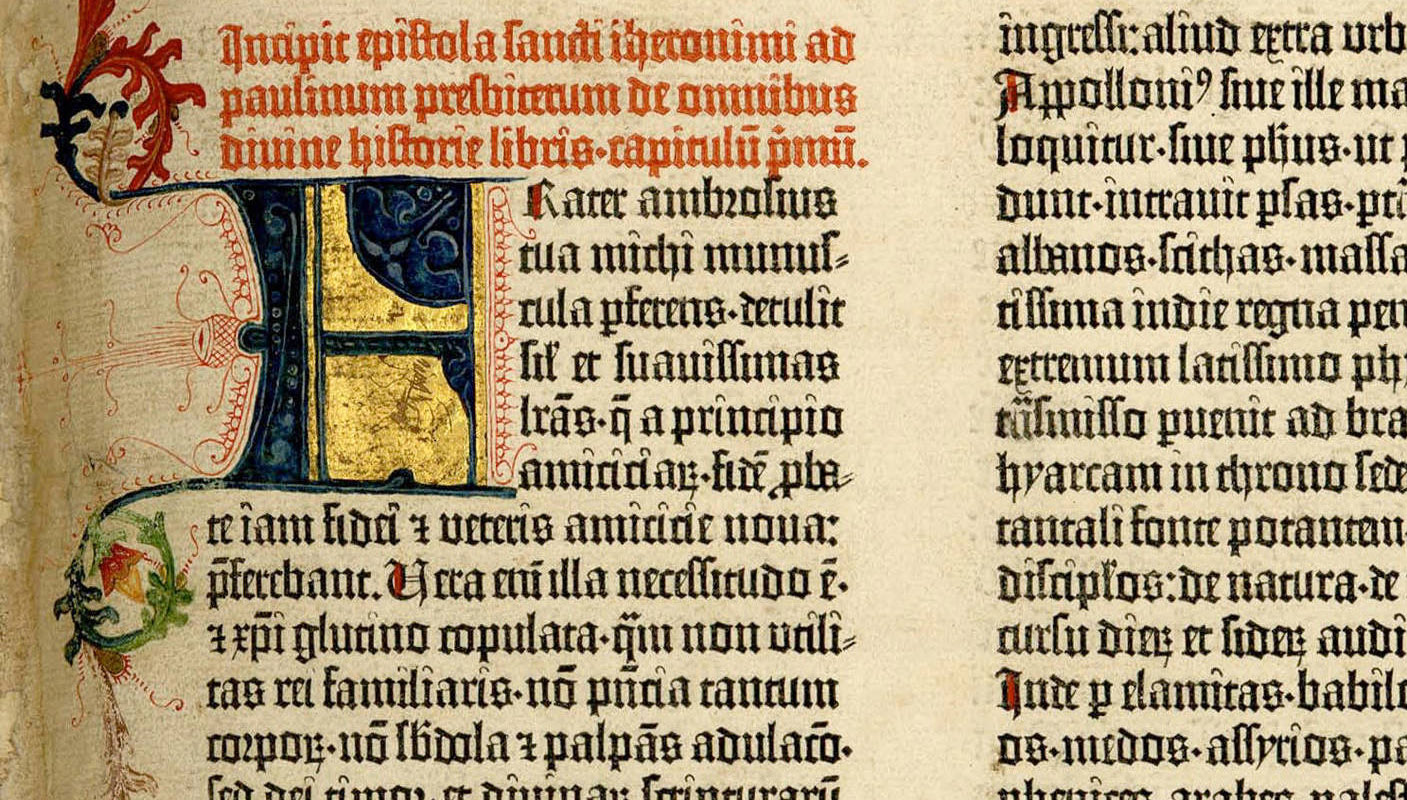 Incipit epistola sancti iheronimi ad
paulinum presbiterum de omnibus
divine historie libris·capitulū p̄mū.
FRater ambrosius
tua michi munus⸗
cula ꝑferens·detulit
sil̛ et suavissimas
lrās·q̄ a principio
amiciciaꝝ·fidē ꝓba⸗
te iam fidei ⁊ veteris amicicie nova:
p̄ferebant. Vera eni̅ illa necessitudo ē·
⁊ xp̄i glutino copulata·q̄m non utili⸗
tas rei familiaris·nō pn̄cia tantum
corpoꝝ·nō sb̄dola ⁊ palpās adulac̄o·
sed dei timor, et divinaꝝ scripturarū
ingressi:aliud extra urb
Appolloniꝰ sive ille ma
loquitur·sive ph̄us·ut p
dunt·intravit ꝑsas·ꝑtr
albanos·scithas·massa
tissima indie regna pen
extremum latissimo phy
trāsmisso ꝑvenit ad bra
hyarcam in throno sede
tantali fonte potantem
discipl̛os:de natura·de
cursu dieꝝ et sideꝝ audi
Inde ꝑ elamitas·babilo
os·medos·assyrios·pa
phenices·arabes·palest